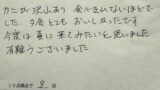 カニが沢山あり 食べきれないほどで
した。夕食とてもおいしかったです
今度は夏に来てみたいと思いました
有難うございました
10点満点で 8 点